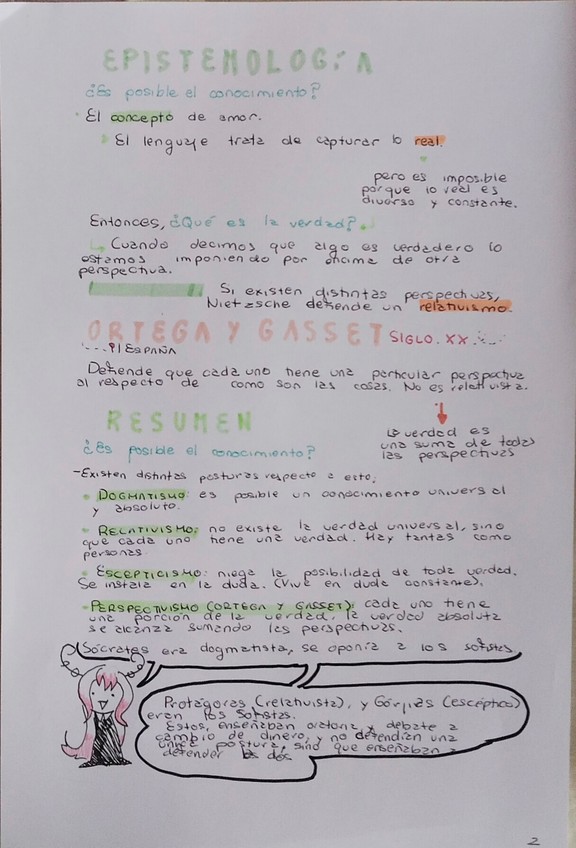 EPISTEMOLOGÍA
¿Es posible el conocimiento?
El concepto de amor.
El lenguaje trata de capturar lo real.
pero es imposible
porque lo real es
diverso y constante.
Entonces, ¿Qué es la verdad?
Cuando decimos que algo es verdadero lo
estamos imponiendo por encima de otra
perspectiva.
Si existen distintas perspectivas,
Nietzsche defiende un relativismo.
ORTEGA Y GASSET SIGLO XX
ESPAÑA
Defiende que cada uno tiene una particular perspectiva
al respecto de como son las cosas. No es relativista.
la verdad es
una suma de todas
las perspectivas
RESUMEN
¿Es posible el conocimiento?
-Existen distintas posturas respecto a esto:
DOGMATISMO: es posible un conocimiento universal
y absoluto.
RELATIVISMO: no existe la verdad universal, sino
que cada uno tiene una verdad. Hay tantas como
personas
ESCEPTICISMO: niega la posibilidad de toda verdad.
Se instala en la duda. (Vive en duda constante).
PERSPECTIVISMO (ORTEGA Y GASSET): cada uno tiene
una porción de la verdad, la verdad absoluta
se alcanza sumando las perspectivas.
Sócrates era dogmatista, se oponía a los sofistas
Protágoras (relativista), y Górgias (escéptico)
eran los sofistas.
Estos, enseñaban oratoria y debate a
cambio de dinero, y no defendían una
única postura, sino que enseñaban a
defender las dos
2